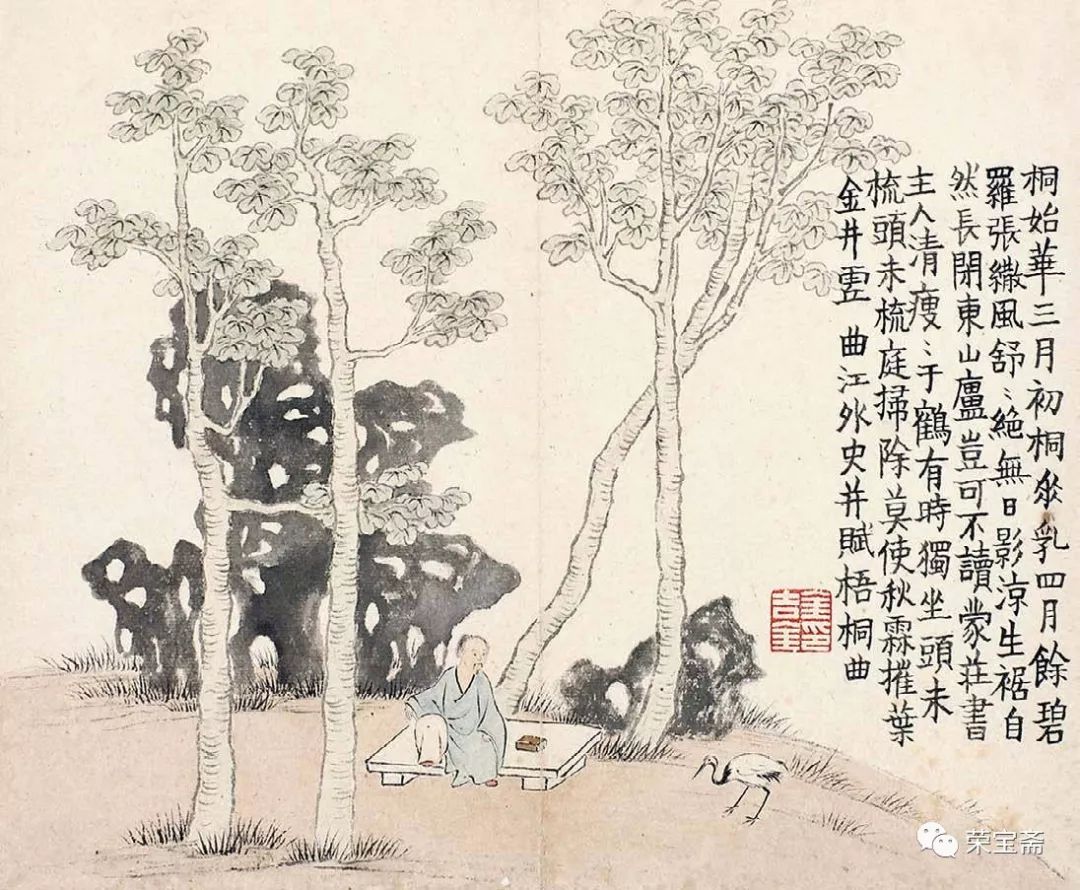 桐始華三月初桐乳四月餘碧
羅張繖風舒〻絕無日影涼生裾自
然長閉東山廬豈可不讀蒙莊書
主人清瘦〻于鶴有時獨坐頭未
梳頭未梳庭掃除莫使秋霖摧葉
金井 曲江外史并賦梧桐曲
金吉金印
荣宝斋